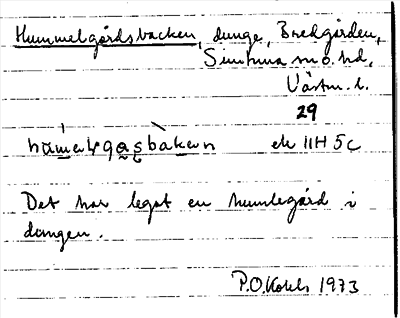 Hummelgårdsbacken, dunge, Bredgården,
Simtuna sn o. hd,
Västm. l.
29
ek 11H 5c
Det har legat en humlegård i
dungen.
P.O. Kols 1973